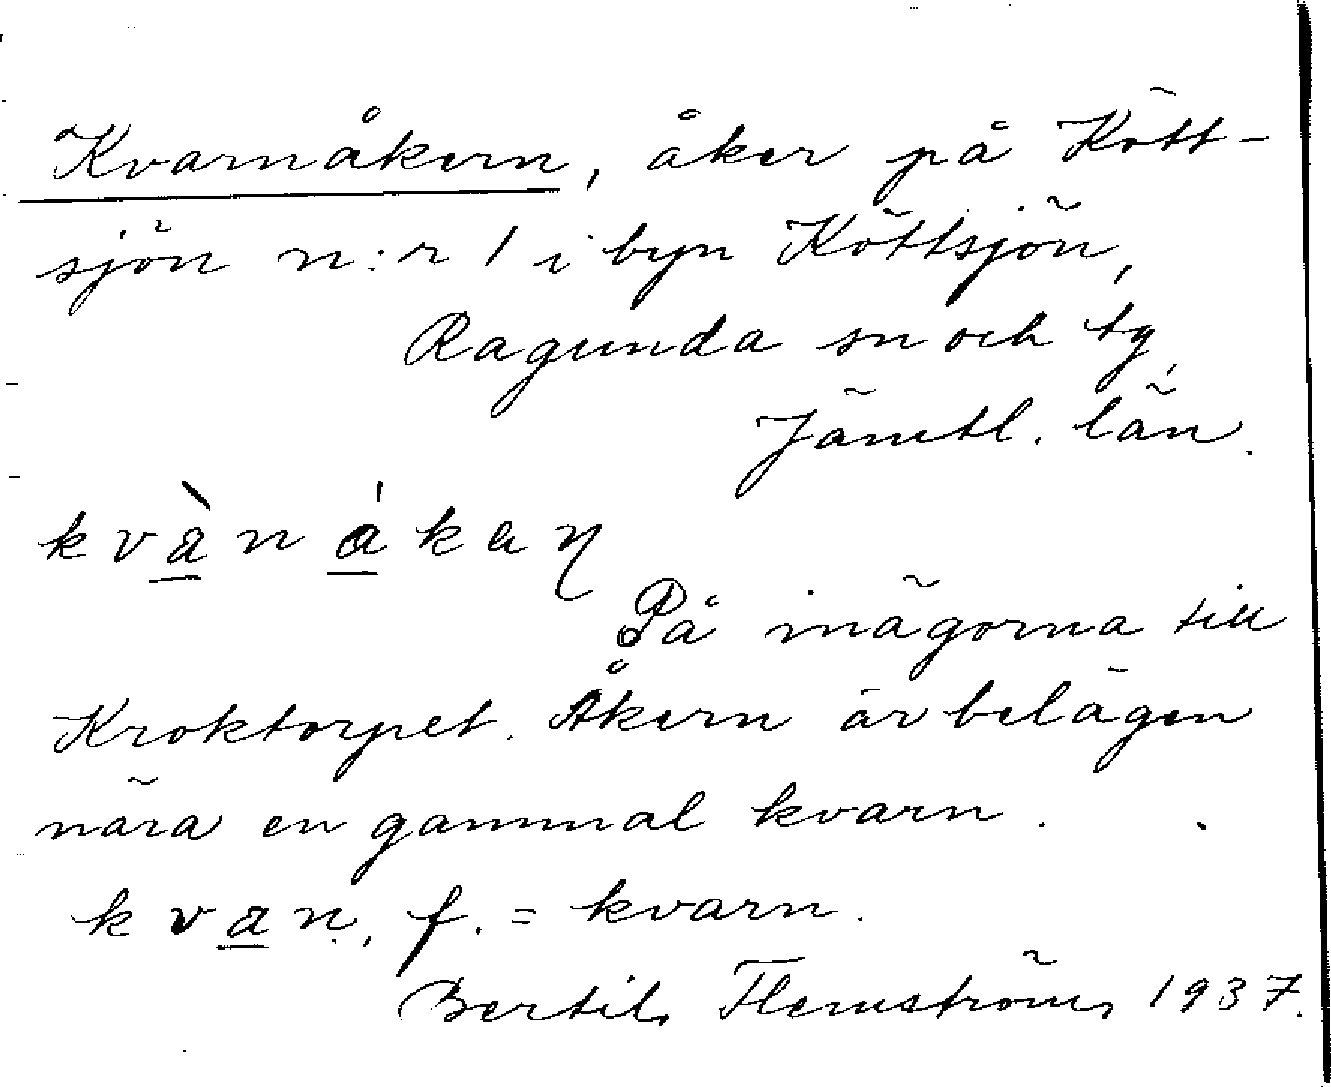 Kvarnåkern, åker på Kött-
sjön n:r 1 i byn Köttsjön,
Ragunda sn och tg,
Jämtl. län.
kvànákaŋ
På inägorna till
Kroktorpet. Åkern är belägen
nära en gammal kvarn.
kvaṇ, f. = kvarn.
Bertil Flemström, 1937.